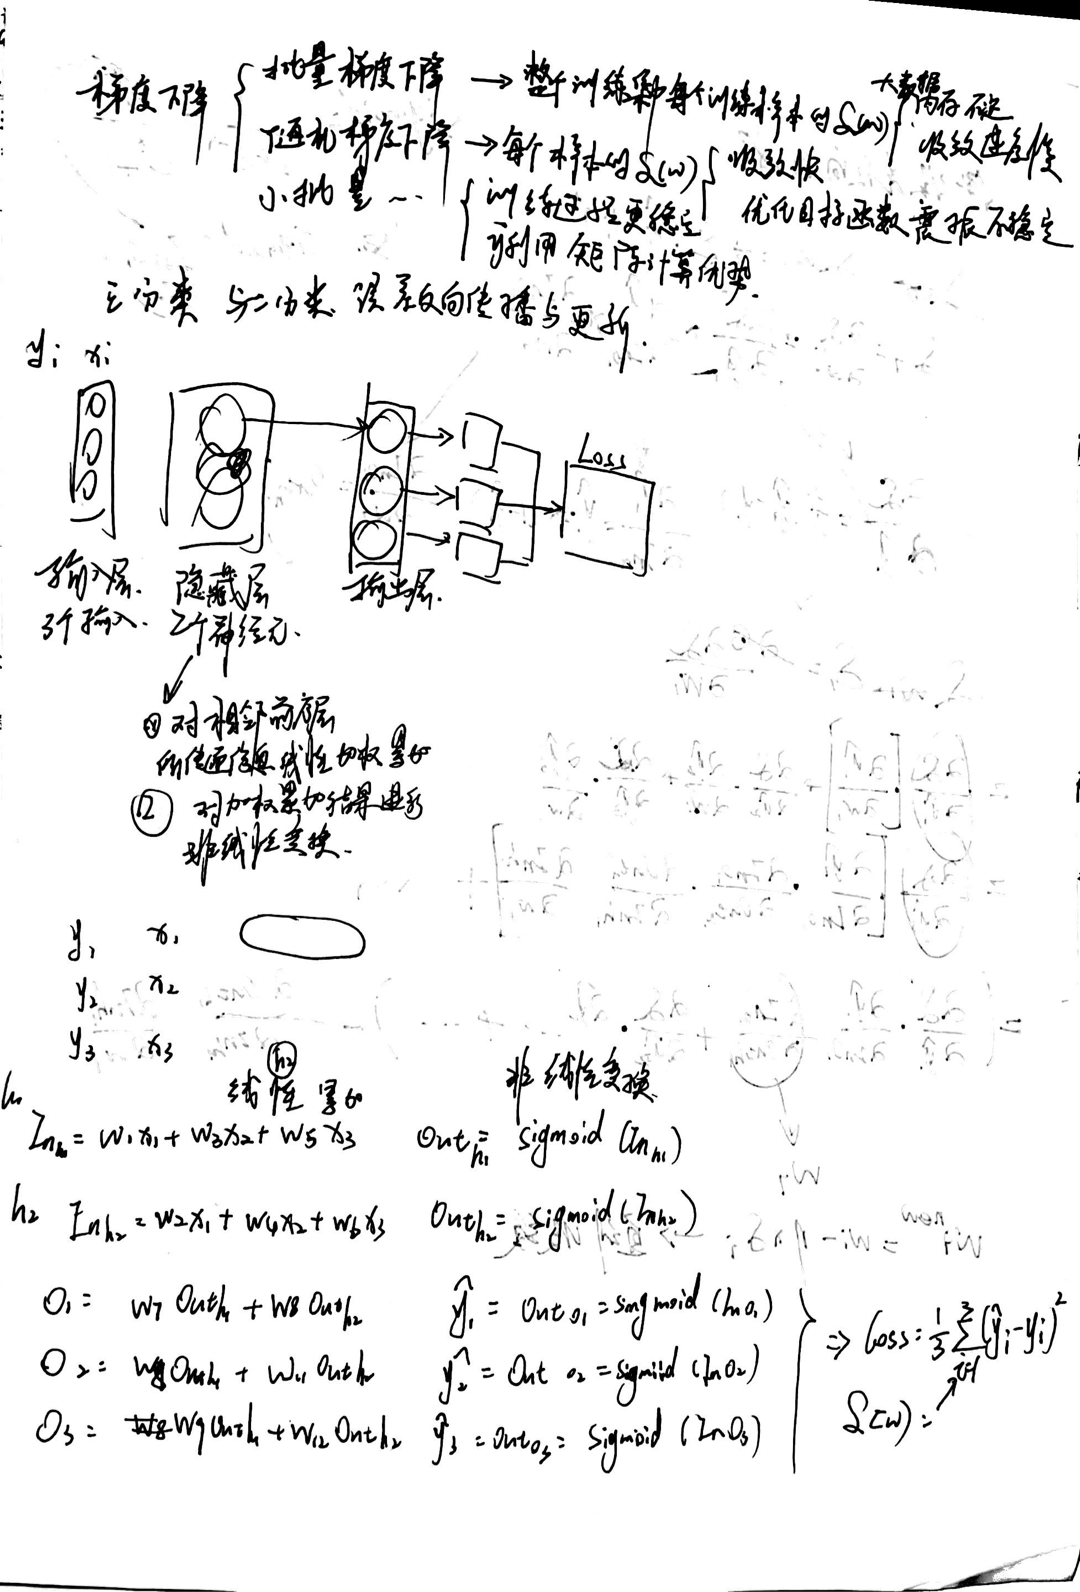 梯度下降 { 批量梯度下降 → 整个训练集中每个训练样本的L(w) { 大数据内存不足 收敛速度慢
随机梯度下降 → 每个样本的L(w) { 收敛快 优化目标函数震振不稳定
小批量… { 训练过程更稳定
可利用矩阵计算优势.
三分类与二分类 误差反向传播与更新.
yi xi
Loss
输入层. 隐藏层 输出层.
3个输入. 2个神经元.
① 对相邻前序层
所传递信息线性加权累加
② 对加权累加结果进行
非线性变换.
y1 x1
y2 x2
y3 x3
h2
线性累加 非线性变换
h1
Inh1 = w1x1 + w3x2 + w5x3 Outh1 = sigmoid (Inh1)
h2 Inh2 = w2x1 + w4x2 + w6x3 Outh2 = sigmoid (Inh2)
O1 = w7 Outh1 + w8 Outh2 ŷ1 = Out o1 = singmoid (Ino1)
O2 = Outh1 + w11 Outh2 ŷ2 = Out o2 = sigmoid (InO2)
O3 = w9 Outh1 + w12 Outh2 ŷ3 = Outo3 = sigmoid (InO3)
⇒ Loss = 1/3 Σ(i=1→3) (ŷi - yi)²
L(w) =